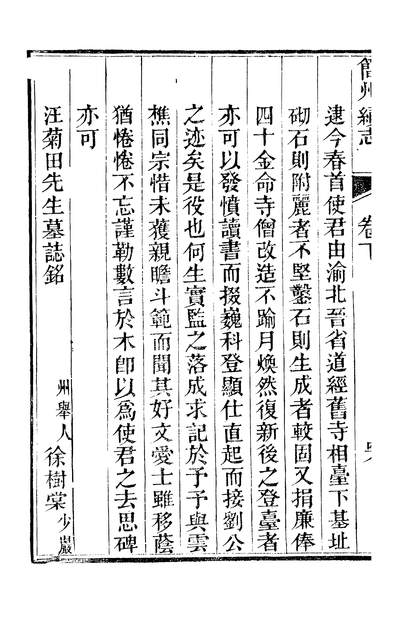 簡州續志
卷下
逮今春首使君由渝北晉省道經舊寺相臺下基址
砌石則附麗者不堅鑿石則生成者較固又捐廉俸
四十金命寺僧改造不踰月煥然復新後之登臺者
亦可以發憤讀書而掇巍科登顯仕直起而接劉公
之迹矣是役也何生實監之落成求記於予予與雲
樵同宗惜未獲親瞻斗範而聞其好文愛士雖移蔭
猶惓惓不忘謹勒數言於木卽以爲使君之去思碑
亦可
汪菊田先生墓誌銘
州舉人徐樹棠少巖